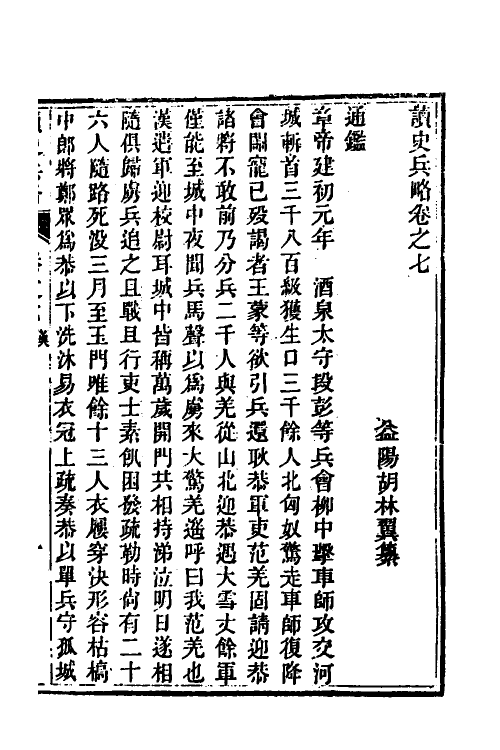 讀史兵略卷之七
益陽胡林翼纂
通鑑
章帝建初元年　酒泉太守段彭等兵會柳中擊車師攻交河
城斬首三千八百級獲生口三千餘人北匈奴驚走車師復降
會關寵已歿謁者王蒙等欲引兵還耿恭軍吏范羌固請迎恭
諸將不敢前乃分兵二千人與羌從山北迎恭遇大雪丈餘軍
僅能至城中夜聞兵馬聲以爲虜來大驚羌遙呼曰我范羌也
漢遣軍迎校尉耳城中皆稱萬歲開門共相持涕泣明日遂相
隨俱歸虜兵追之且戰且行吏士素飢困發疏勒時尚有二十
六人隨路死沒三月至玉門唯餘十三人衣屨穿決形容枯槁
中郎將鄭眾爲恭以下洗沐易衣冠上疏奏恭以單兵守孤城
一